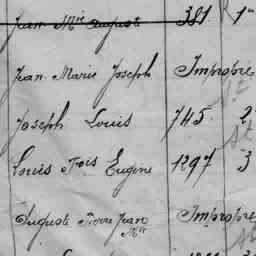 Jean Mie Auguste 381 1
Jean Marie Joseph Impropre
Joseph Louis 745 2
Louis Fois Eugène 1297 3
Auguste Pierre Jean Mie Impropre